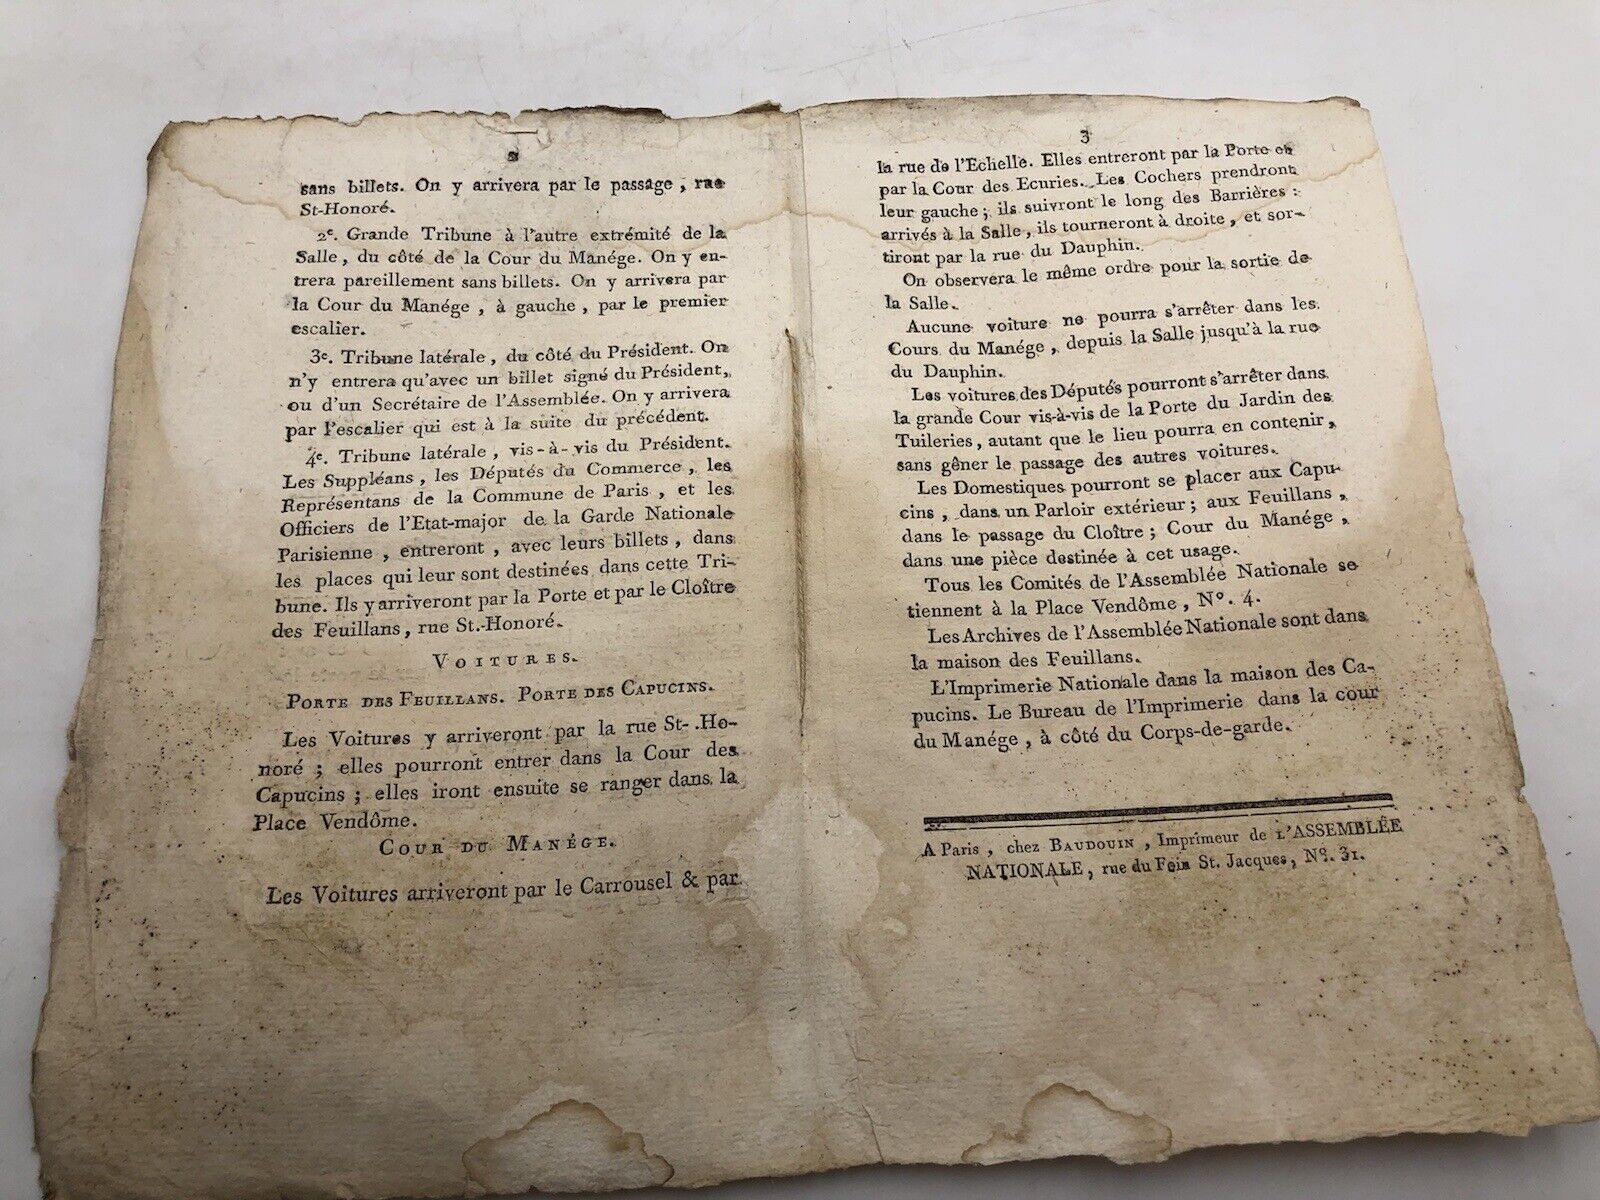 2
sans billets. On y arrivera par le passage, rue
St-Honoré.
2e. Grande Tribune à l'autre extrémité de la
Salle, du côté de la Cour du Manége. On y en-
trera pareillement sans billets. On y arrivera par
la Cour du Manége, à gauche, par le premier
escalier.
3e. Tribune latérale, du côté du Président. On
n'y entrera qu'avec un billet signé du Président,
ou d'un Secrétaire de l'Assemblée. On y arrivera
par l'escalier qui est à la suite du précédent.
4e. Tribune latérale, vis-à-vis du Président.
Les Suppléans, les Députés du Commerce, les
Représentans de la Commune de Paris, et les
Officiers de l'Etat-major de la Garde Nationale
Parisienne, entreront, avec leurs billets, dans
les places qui leur sont destinées dans cette Tri-
bune. Ils y arriveront par la Porte et par le Cloître
des Feuillans, rue St.-Honoré.
VOITURES.
PORTE DES FEUILLANS. PORTE DES CAPUCINS.
Les Voitures y arriveront par la rue St-.Ho-
noré ; elles pourront entrer dans la Cour des
Capucins ; elles iront ensuite se ranger dans la
Place Vendôme.
COUR DU MANÉGE.
Les Voitures arriveront par le Carrousel & par
3
la rue de l'Echelle. Elles entreront par la Porte et
par la Cour des Ecuries. Les Cochers prendront
leur gauche ; ils suivront le long des Barrières :
arrivés à la Salle, ils tourneront à droite, et sor-
tiront par la rue du Dauphin.
On observera le même ordre pour la sortie de
la Salle.
Aucune voiture ne pourra s'arrêter dans les
Cours du Manége, depuis la Salle jusqu'à la rue
du Dauphin.
Les voitures des Députés pourront s'arrêter dans
la grande Cour vis-à-vis de la Porte du Jardin des
Tuileries, autant que le lieu pourra en contenir,
sans gêner le passage des autres voitures.
Les Domestiques pourront se placer aux Capu-
cins, dans un Parloir extérieur ; aux Feuillans,
dans le passage du Cloître ; Cour du Manége,
dans une pièce destinée à cet usage.
Tous les Comités de l'Assemblée Nationale se
tiennent à la Place Vendôme, No. 4.
Les Archives de l'Assemblée Nationale sont dans
la maison des Feuillans.
L'Imprimerie Nationale dans la maison des Ca-
pucins. Le Bureau de l'Imprimerie dans la cour
du Manége, à côté du Corps-de-garde.
A Paris, chez BAUDOUIN, Imprimeur de L'ASSEMBLÉE
NATIONALE, rue du Foin St. Jacques, No. 31.